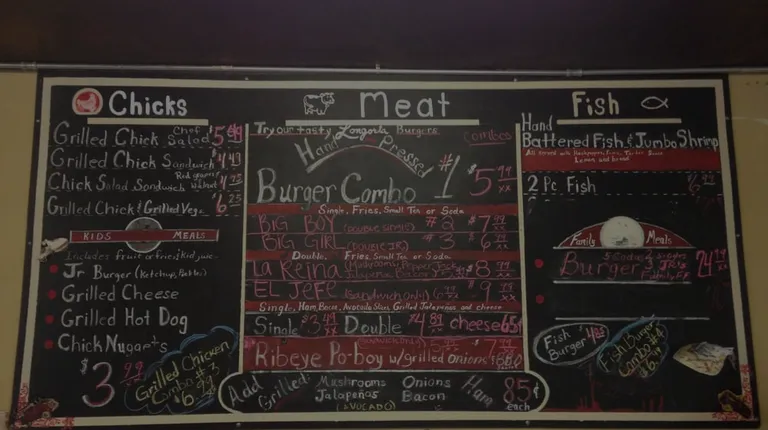 Chicks
Grilled Chick Chef Salad $5 49
Grilled Chick Sandwich $4 49
Chick Salad Sandwich Red grapes Walnut
Grilled Chick & Grilled Vegs $6 25
KIDS MEALS
Includes fruit or fries/kid juice
Jr Burger (Ketchup, Pickles)
Grilled Cheese
Grilled Hot Dog
Chick Nuggets
$3 99
Grilled Chicken
Combo #3
$6 99
Meat
Try our tasty Longorla Burgers
Combos
Hand Pressed
Burger Combo #1 $5 99
Single, Fries, Small Tea or Soda
BIG BOY (DOUBLE SINGLE) #2 $7 99
BIG GIRL (DOUBLE JR) #3 $6 99
Double, Fries, Small Tea or Soda
La Reina $8 99
EL JEFE (Sandwich Only) $9
Single, Ham, Bacon, Avocado Slices, Grilled Jalapeños and cheese
Single $3 49 Double $4 89 cheese 65¢
Ribeye Po-boy w/grilled onions
Add Grilled: Mushrooms Onions Ham 85¢ each
Jalapeños Bacon
(AVOCADO)
Fish
Hand
Battered Fish & Jumbo Shrimp
Lemon and bread
2 Pc Fish
Family Meals
Burger
Fish
Burger
Fish Burger
Combo #4